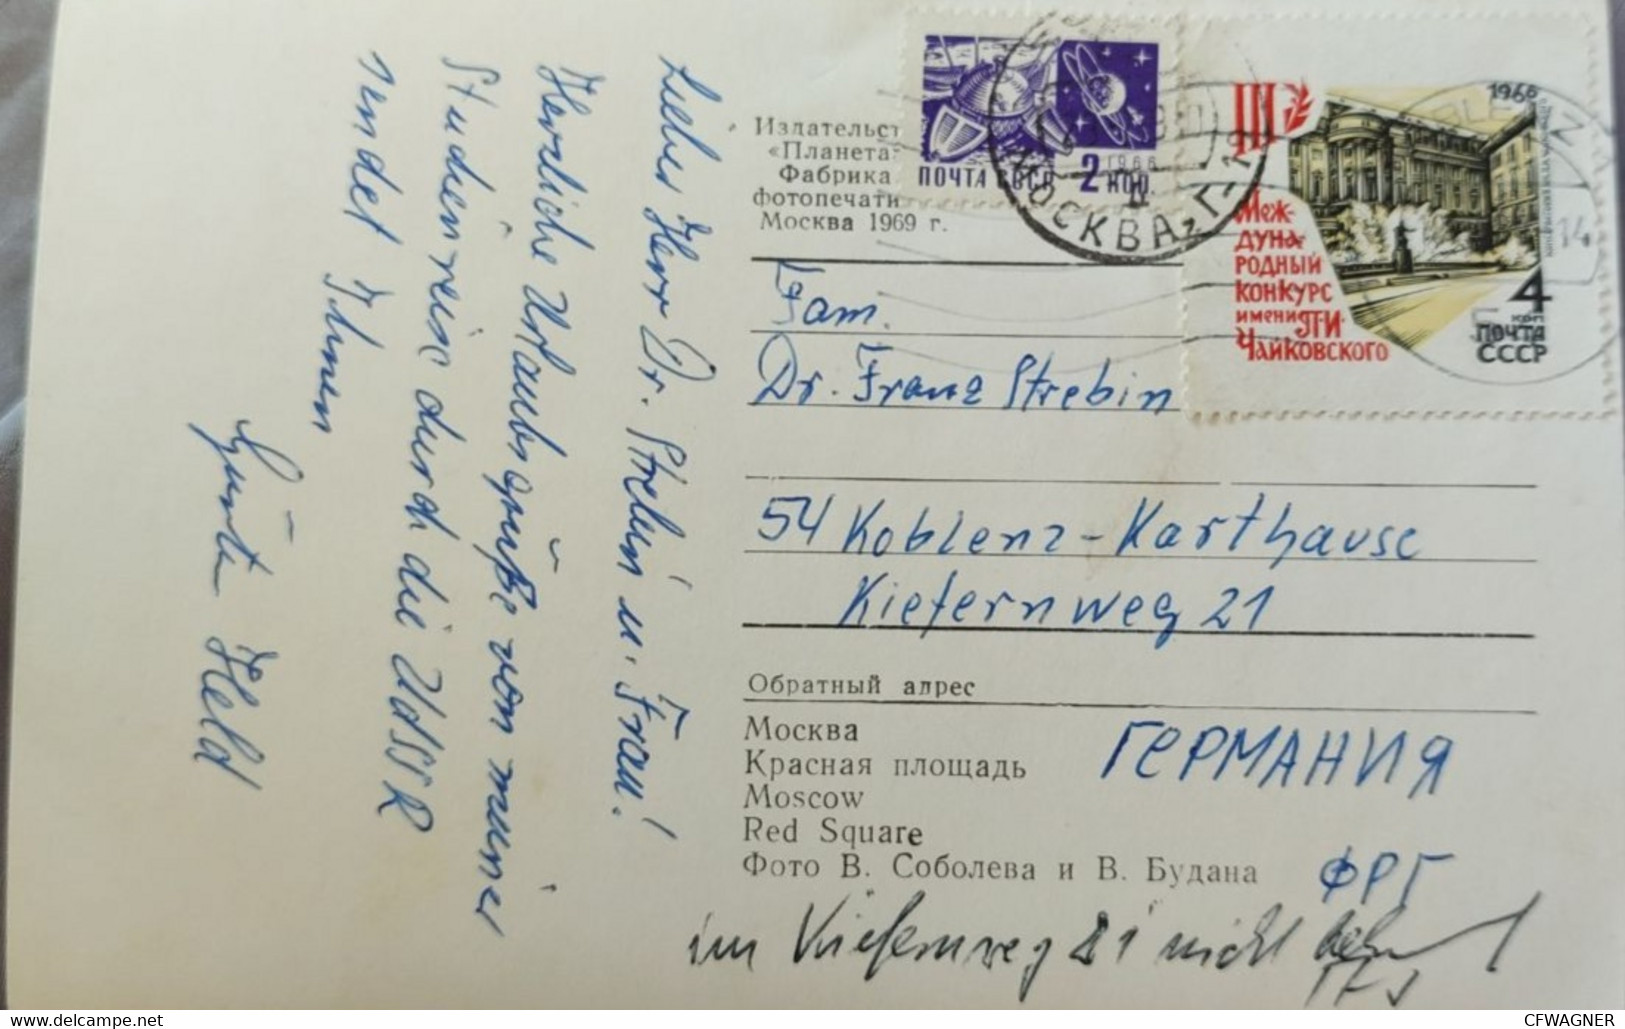 Lieber Herr Dr. Strebin u. Frau!
Herzliche Urlaubsgrüße von meiner
Studienreise durch die UdSSR
sendet Ihnen
Held
Издательст
«Планета
Фабрика
фотопечати
Москва 1969 г.
ПОЧТА СССР 2 КОП.
1966
МОСКВА
III
1966
Меж-
дуна-
родный
конкурс
имени П·И·
Чайковского
4
коп
ПОЧТА
СССР
14
Fam.
Dr. Franz Strebin
54 Koblenz-Karthause
Kiefernweg 21
Обратный адрес
Москва
Красная площадь
Moscow
Red Square
Фото В. Соболева и В. Будана
ГЕРМАНИЯ
ФРГ
im Kiefernweg 21 nicht
CFWAGNER